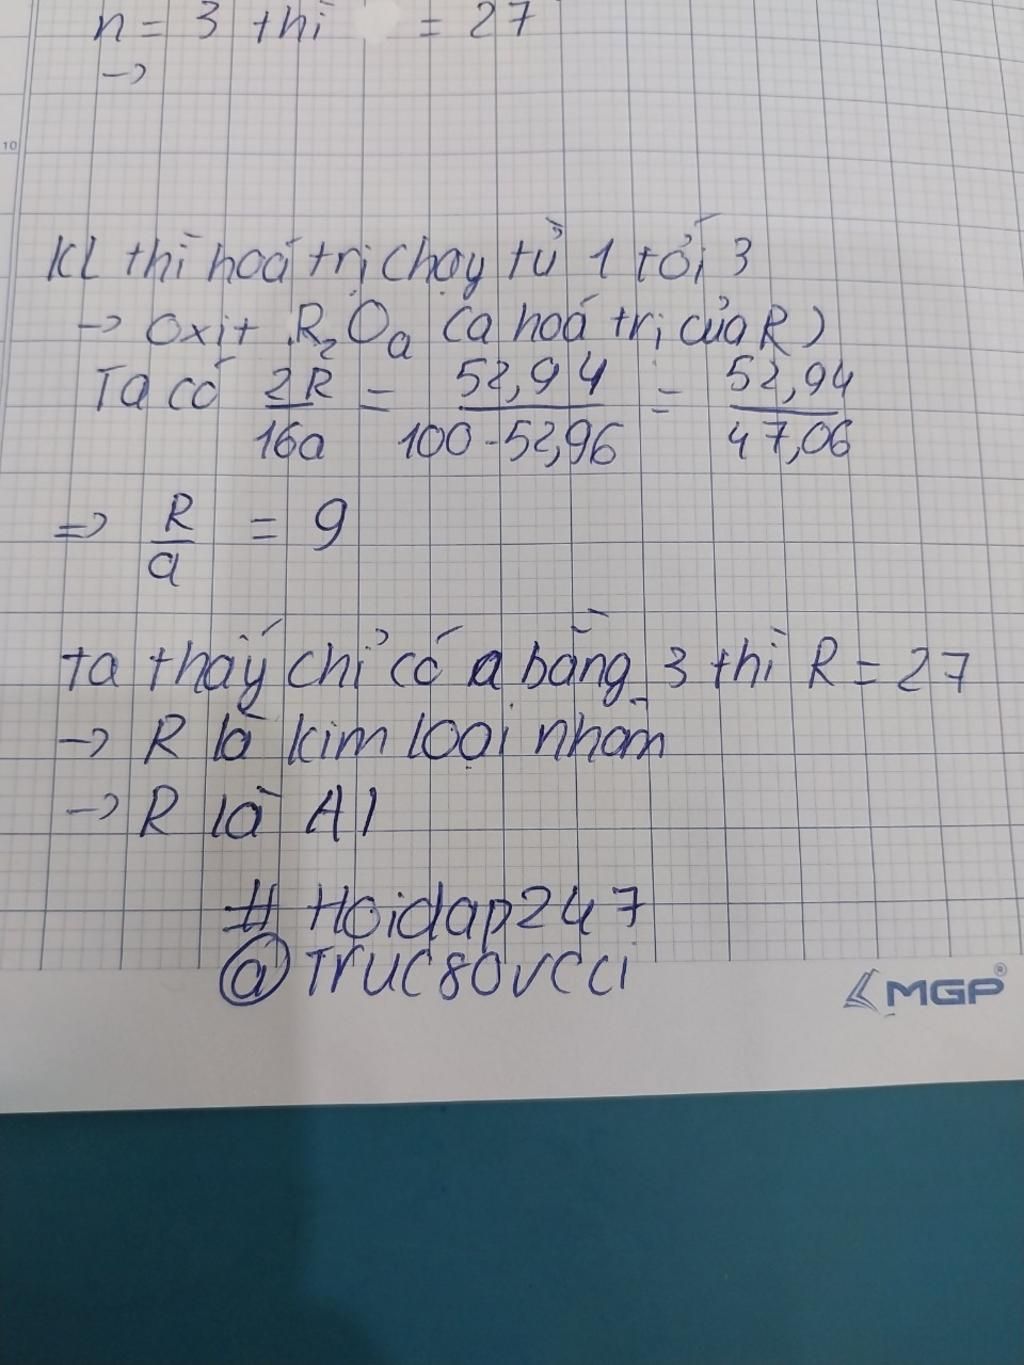 n = 3 thì = 27
→
10
KL thì hoá trị chạy từ 1 tới 3
→ Oxit R₂Oₐ (a hoá trị của R)
Ta có 2R/16a = 52,94/100-52,96 = 52,94/47,06
=> R/a = 9
ta thấy chỉ có a bằng 3 thì R = 27
→ R là kim loại nhôm
→ R là Al
# Hoidap247
@Truc80vcci
MGP®